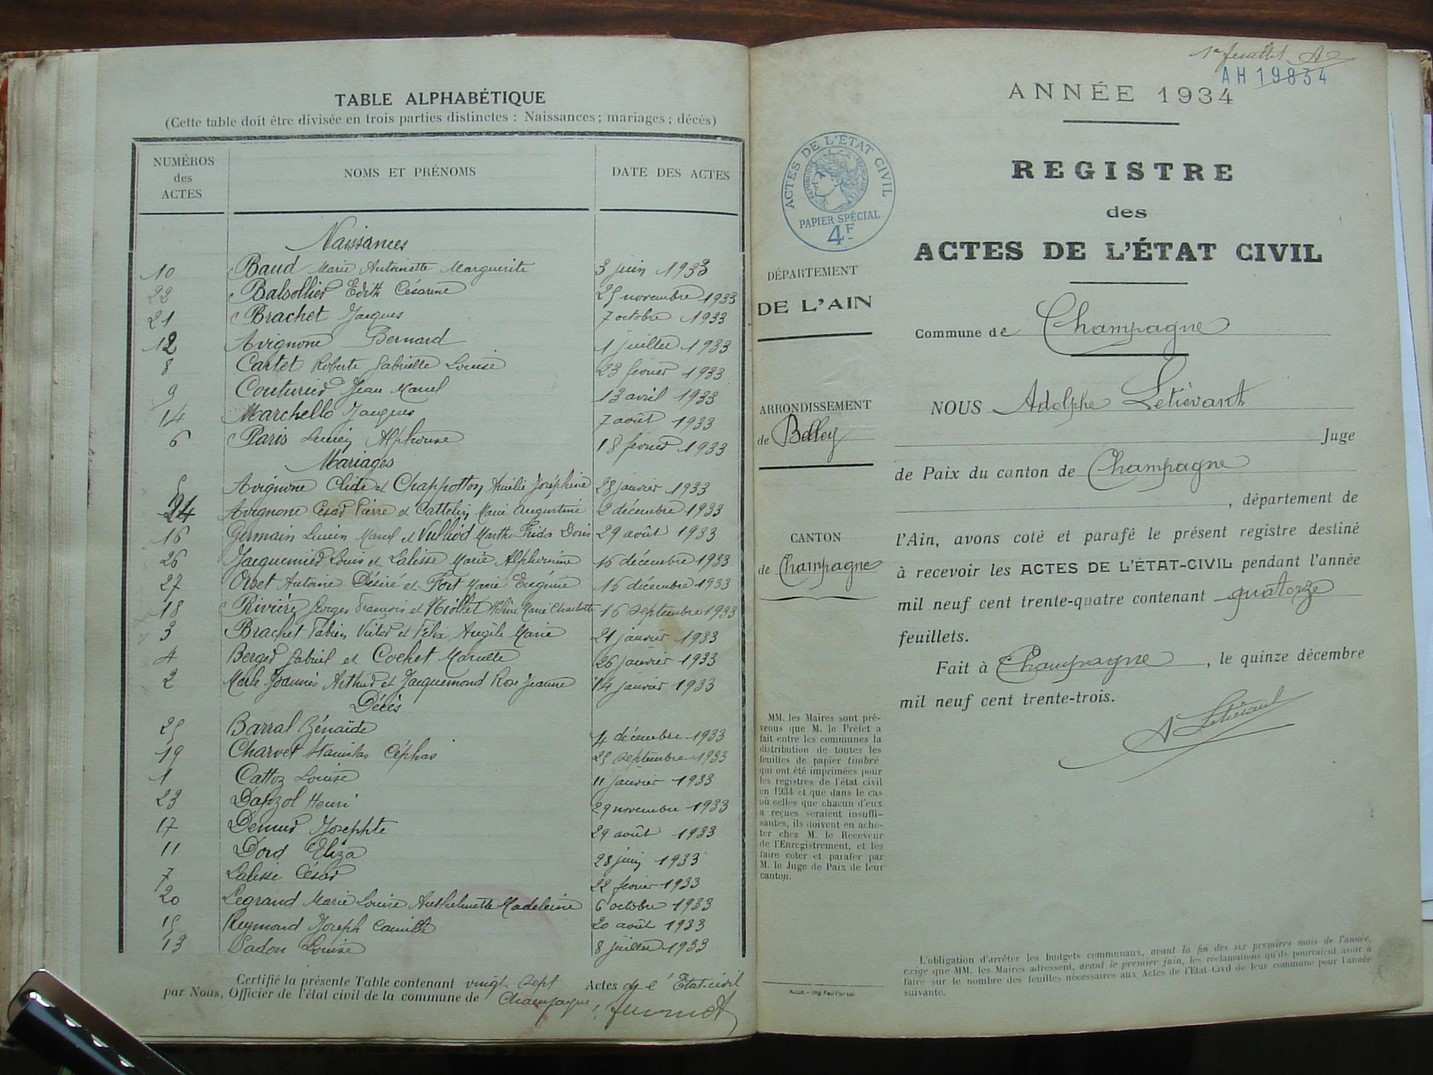 TABLE ALPHABÉTIQUE
(Cette table doit être divisée en trois parties distinctes : Naissances ; mariages ; décès)
NUMÉROS des ACTES NOMS ET PRÉNOMS DATE DES ACTES
Naissances
10 Baud Marie Antoinette Marguerite 3 juin 1933
22 Balsollier Edith Césarine 25 novembre 1933
21 Brachet Jacques 7 octobre 1933
12 Avignone Bernard 1 juillet 1933
8 Cartet Roberte Gabrielle Louise 23 février 1933
9 Couturier Jean Marcel 13 avril 1933
14 Marchello Jacques 7 août 1933
6 Paris Lucien Alphonse 18 février 1933
Mariages
5 Avignone Clide et Chappotton Amélie Joséphine 28 janvier 1933
24 Avignone César Pierre et Cattelin Marie Augustine 2 décembre 1933
16 Germain Lucien Marcel et Vulliod Marthe Frida Doris 29 août 1933
26 Jacquemier Louis et Lalisse Marie Alphonsine 16 décembre 1933
27 Orbet Antoine Désiré et Fort Marie Eugénie 16 décembre 1933
18 Rivière Georges François et Marie Charlotte 16 septembre 1933
3 Brachet Fabien Victor et Angèle Marie 21 janvier 1933
4 Berger Gabriel et Cochet Marcelle 26 janvier 1933
2 Merle Joannès Arthur et Jacquemond Rose Jeanne 14 janvier 1933
Décès
25 Barral Zénaïde 4 décembre 1933
19 Charvet Stanislas Céphas 25 septembre 1933
1 Cattoz Louise 11 janvier 1933
23 Dapzol Henri 29 novembre 1933
17 Demur Josephte 29 août 1933
11 Dord Eliza 28 juin 1933
7 Lalisse César 22 février 1933
20 Legrand Marie Louise Anthelmette Madeleine 6 octobre 1933
15 Reymond Joseph Camille 20 août 1933
13 Sadon Louise 8 juillet 1933
Certifié la présente Table contenant vingt sept Actes de l'État-civil
par Nous, Officier de l'état civil de la commune de Champagne
1er feuillet
AH 19834
ANNÉE 1934
REGISTRE
des
ACTES DE L'ÉTAT CIVIL
ACTES DE L'ÉTAT CIVIL
PAPIER SPÉCIAL
4F
DÉPARTEMENT
DE L'AIN
Commune de Champagne
ARRONDISSEMENT
de Belley
CANTON
de Champagne
NOUS Adolphe Letiévant
Juge
de Paix du canton de Champagne
, département de
l'Ain, avons coté et parafé le présent registre destiné
à recevoir les ACTES DE L'ÉTAT-CIVIL pendant l'année
mil neuf cent trente-quatre contenant quatorze
feuillets.
Fait à Champagne, le quinze décembre
mil neuf cent trente-trois.
A Letiévant
MM. les Maires sont pré-
venus que M. le Préfet a
fait entre les communes la
distribution de toutes les
feuilles de papier timbré
qui ont été imprimées pour
les registres de l'état civil
en 1934 et que dans le cas
où celles que chacun d'eux
a reçues seraient insuffi-
santes, ils doivent en ache-
ter chez M. le Receveur
de l'Enregistrement, et les
faire coter et parafer par
M. le Juge de Paix de leur
canton.
L'obligation d'arrêter les budgets communaux, avant la fin des six premiers mois de l'année,
exige que MM. les Maires adressent, avant le premier juin, les réclamations qu'ils pourraient avoir à
faire sur le nombre des feuilles nécessaires aux Actes de l'État Civil de leur commune pour l'année
suivante.